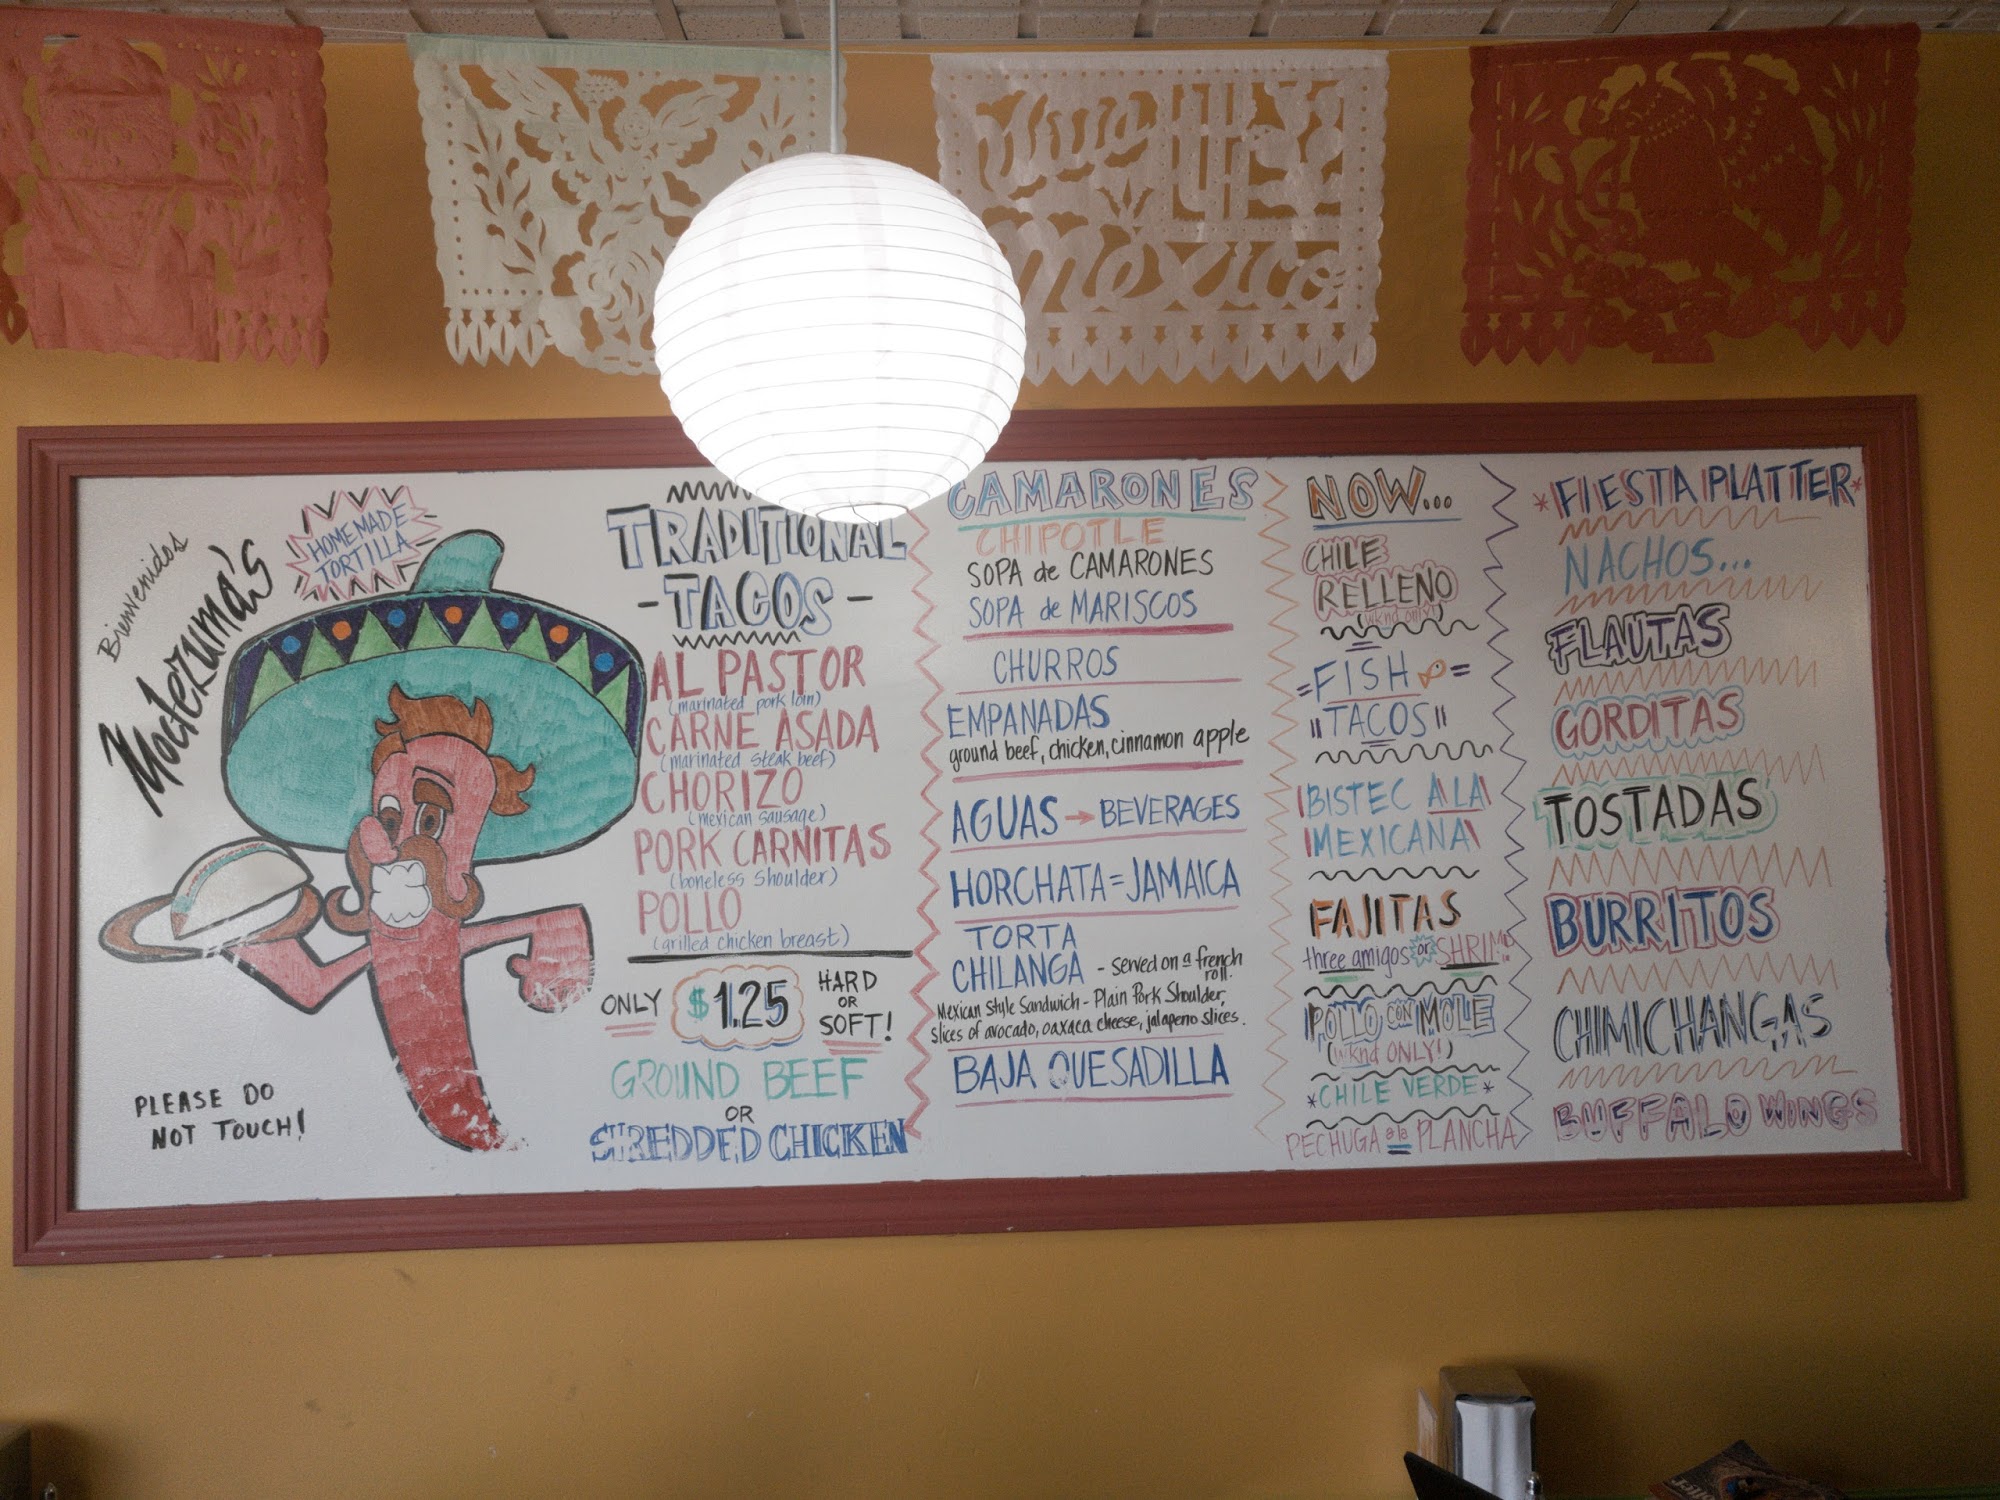 Viva
México
Bienvenidos
Moctezuma's
HOMEMADE
TORTILLA
PLEASE DO
NOT TOUCH!
TRADITIONAL
- TACOS -
AL PASTOR
(marinated pork loin)
CARNE ASADA
(marinated steak beef)
CHORIZO
(mexican sausage)
PORK CARNITAS
(boneless shoulder)
POLLO
(grilled chicken breast)
ONLY $1.25 HARD
OR
SOFT!
GROUND BEEF
OR
SHREDDED CHICKEN
CAMARONES
CHIPOTLE
SOPA de CAMARONES
SOPA de MARISCOS
CHURROS
EMPANADAS
ground beef, chicken, cinnamon apple
AGUAS → BEVERAGES
HORCHATA = JAMAICA
TORTA
CHILANGA - served on a french
roll.
Mexican Style Sandwich - Plain Pork Shoulder,
slices of avocado, oaxaca cheese, jalapeno slices.
BAJA QUESADILLA
NOW...
CHILE
RELLENO
(wknd only!)
=FISH=
"TACOS"
BISTEC A LA
MEXICANA
FAJITAS
three amigos or SHRIMP
POLLO CON MOLE
(wknd ONLY!)
*CHILE VERDE*
PECHUGA a la PLANCHA
*FIESTA PLATTER*
NACHOS...
FLAUTAS
GORDITAS
TOSTADAS
BURRITOS
CHIMICHANGAS
BUFFALO WINGS